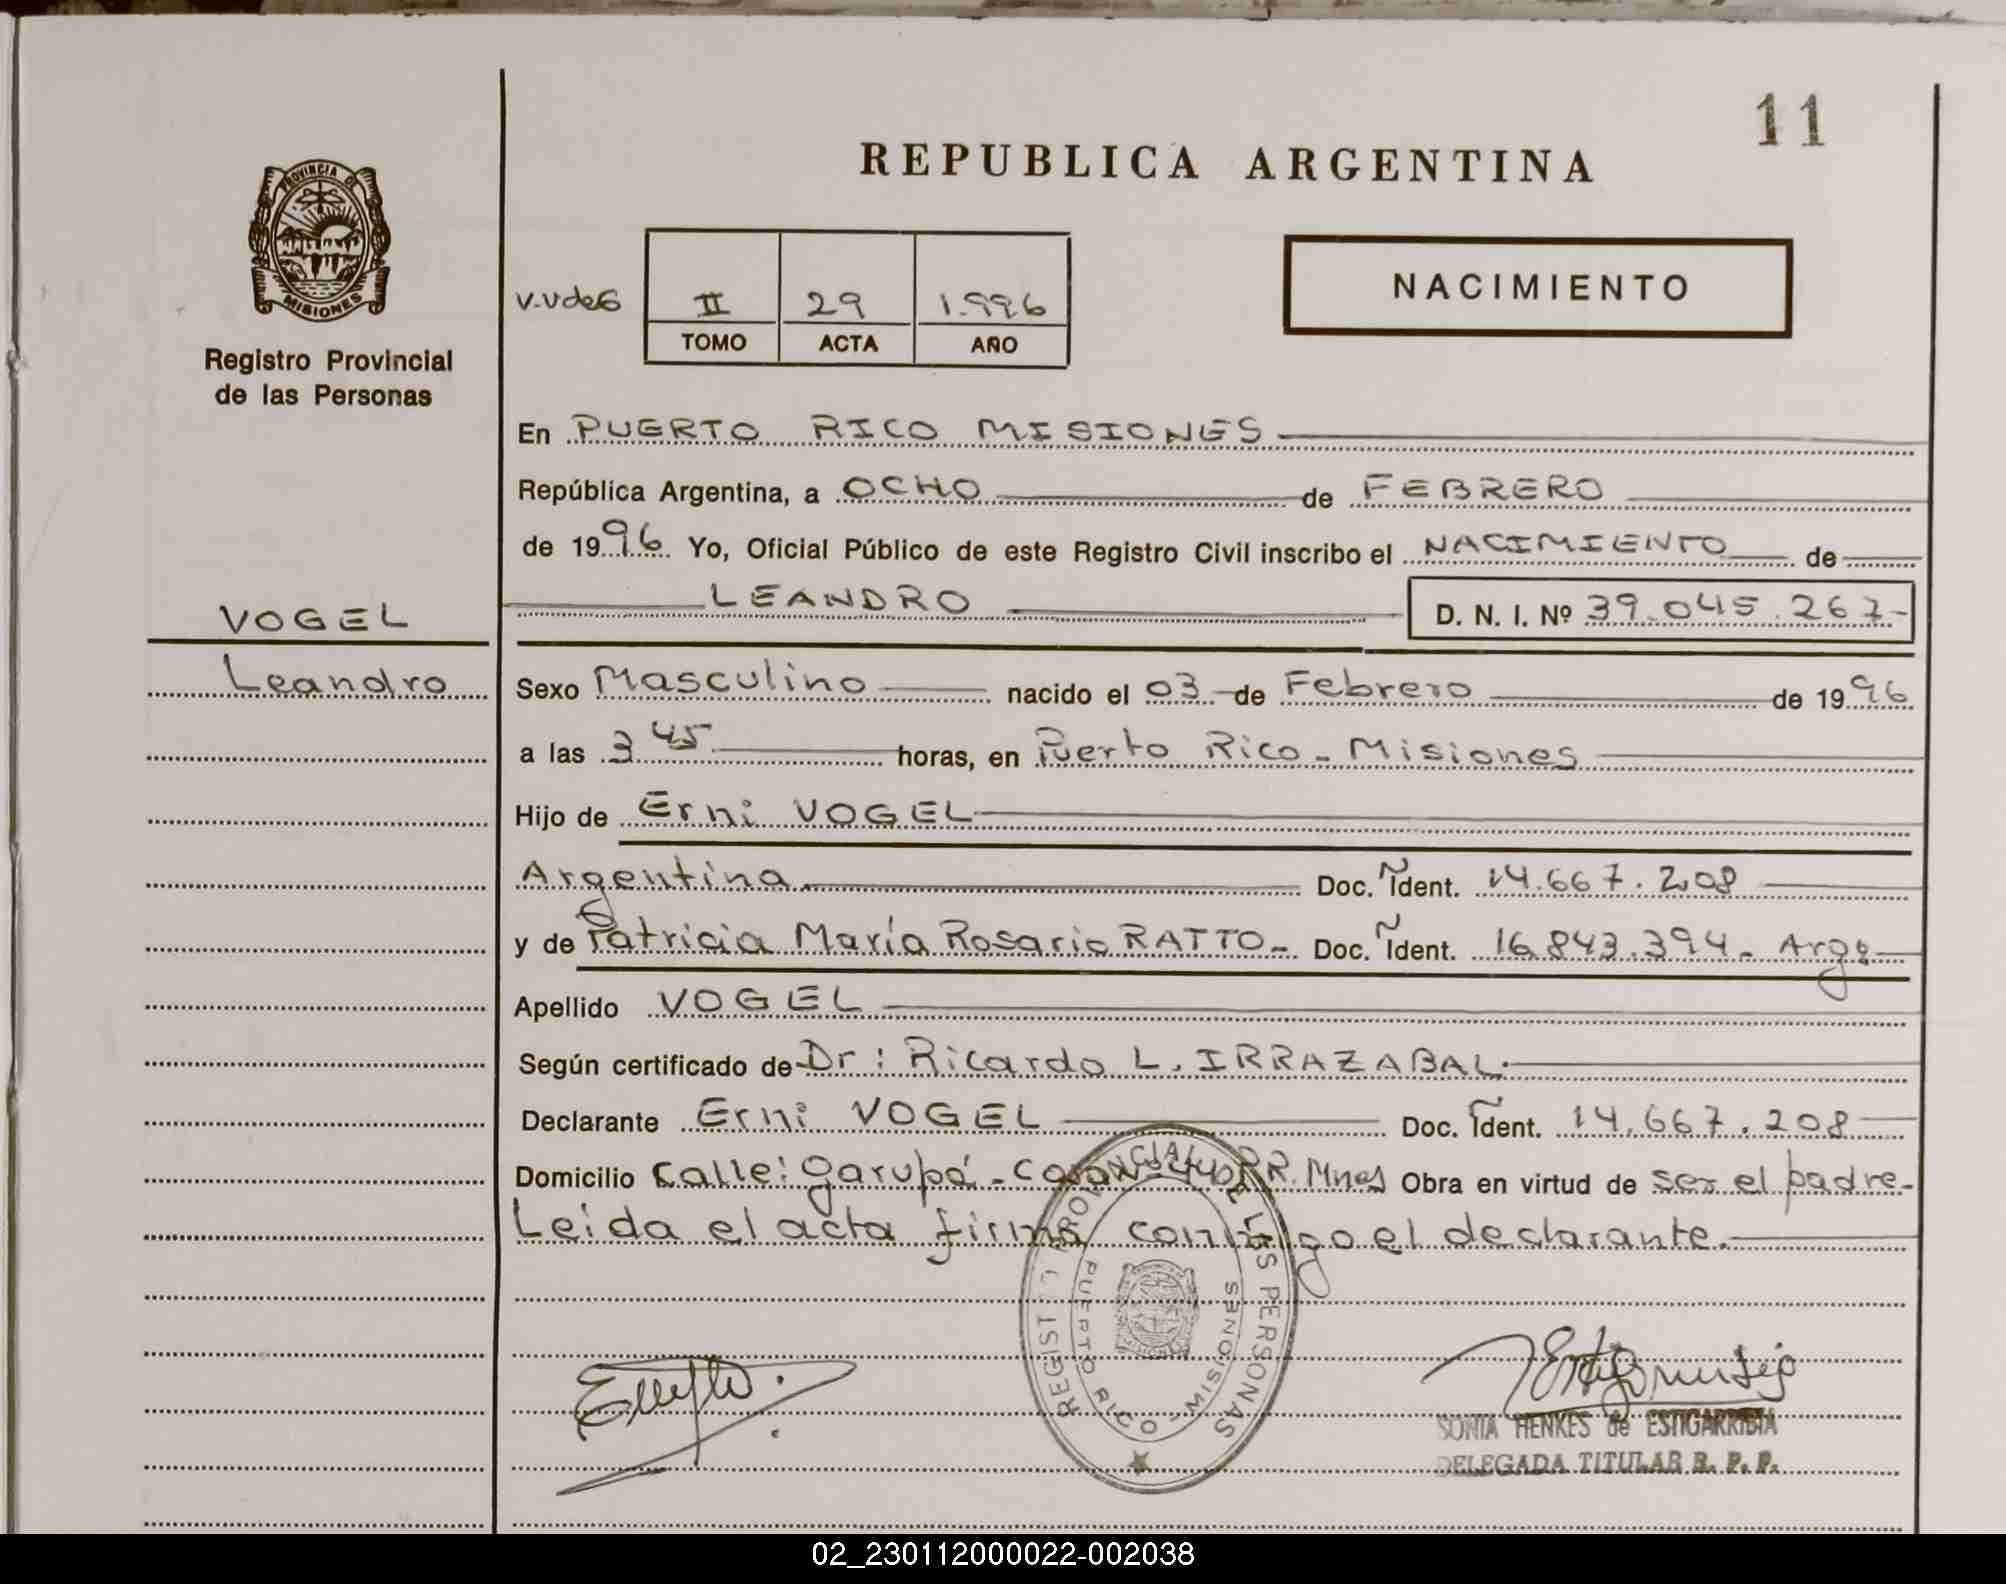 11
REPUBLICA ARGENTINA
PROVINCIA DE
MISIONES
Registro Provincial
de las Personas
V.V de G
II 29 1.996
TOMO ACTA AÑO
NACIMIENTO
En PUERTO RICO MISIONES
República Argentina, a OCHO de FEBRERO
de 1996 Yo, Oficial Público de este Registro Civil inscribo el NACIMIENTO de
LEANDRO D. N. I. Nº 39.045.267-
VOGEL
Leandro
Sexo Masculino nacido el 03 de Febrero de 1996
a las 3 45 horas, en Puerto Rico - Misiones
Hijo de Erni VOGEL
Argentina Doc. Ident. 14.667.208
y de Patricia María Rosario RATTO- Doc. Ident. 16.843.394- Arg
Apellido VOGEL
Según certificado de Dr: Ricardo L. IRRAZABAL
Declarante Erni VOGEL Doc. Ident. 14.667.208
Domicilio Calle: Garupá - P.R. Mnes Obra en virtud de ser el padre-
Leida el acta firma conmigo el declarante.
REGISTRO PROVINCIAL DE LAS PERSONAS
PUERTO RICO - MISIONES
SONIA HENKES de ESTIGARRIBIA
DELEGADA TITULAR R. P. P.
02_230112000022-002038